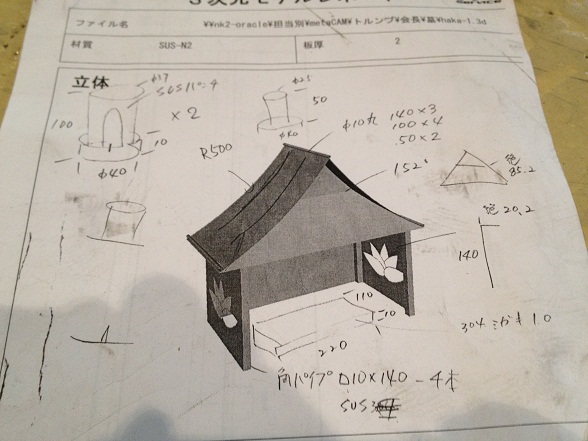 3次元モデルレポート
Service
ファイル名
¥¥nk2-oracle¥担当別¥metaCAM¥トルンプ¥会長¥墓¥haka-1.3d
材質
SUS-N2
板厚
2
立体
φ17
× 2
100
10
φ40
φ25
50
φ40
R500
φ10丸
140×3
100×4
50×2
152°
85.2
20.2
140
110
10
220
304 ミガキ 10
角パイプ □10×140 - 4本
SUS